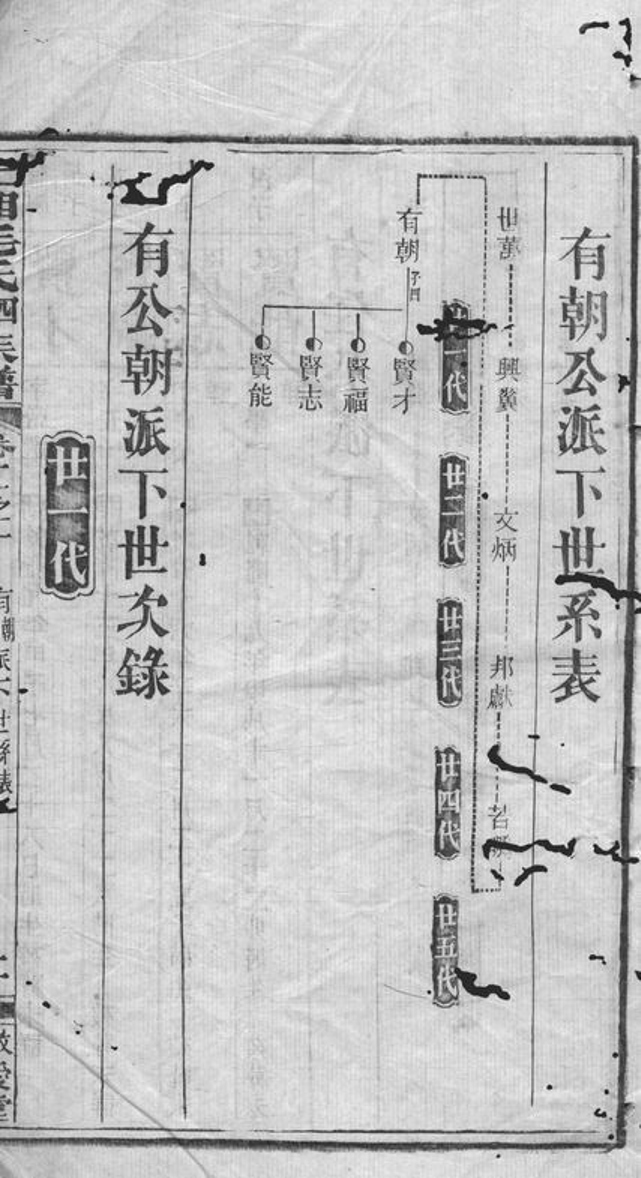 有朝公派下世系表
世萬
興糞
文炳
邦獻
若
代
廿二代
廿三代
廿四代
廿五代
有朝
子四
賢才
賢福
賢志
賢能
有公朝派下世次錄
廿一代
毛氏四族譜
有朝派下世系表
敬愛堂